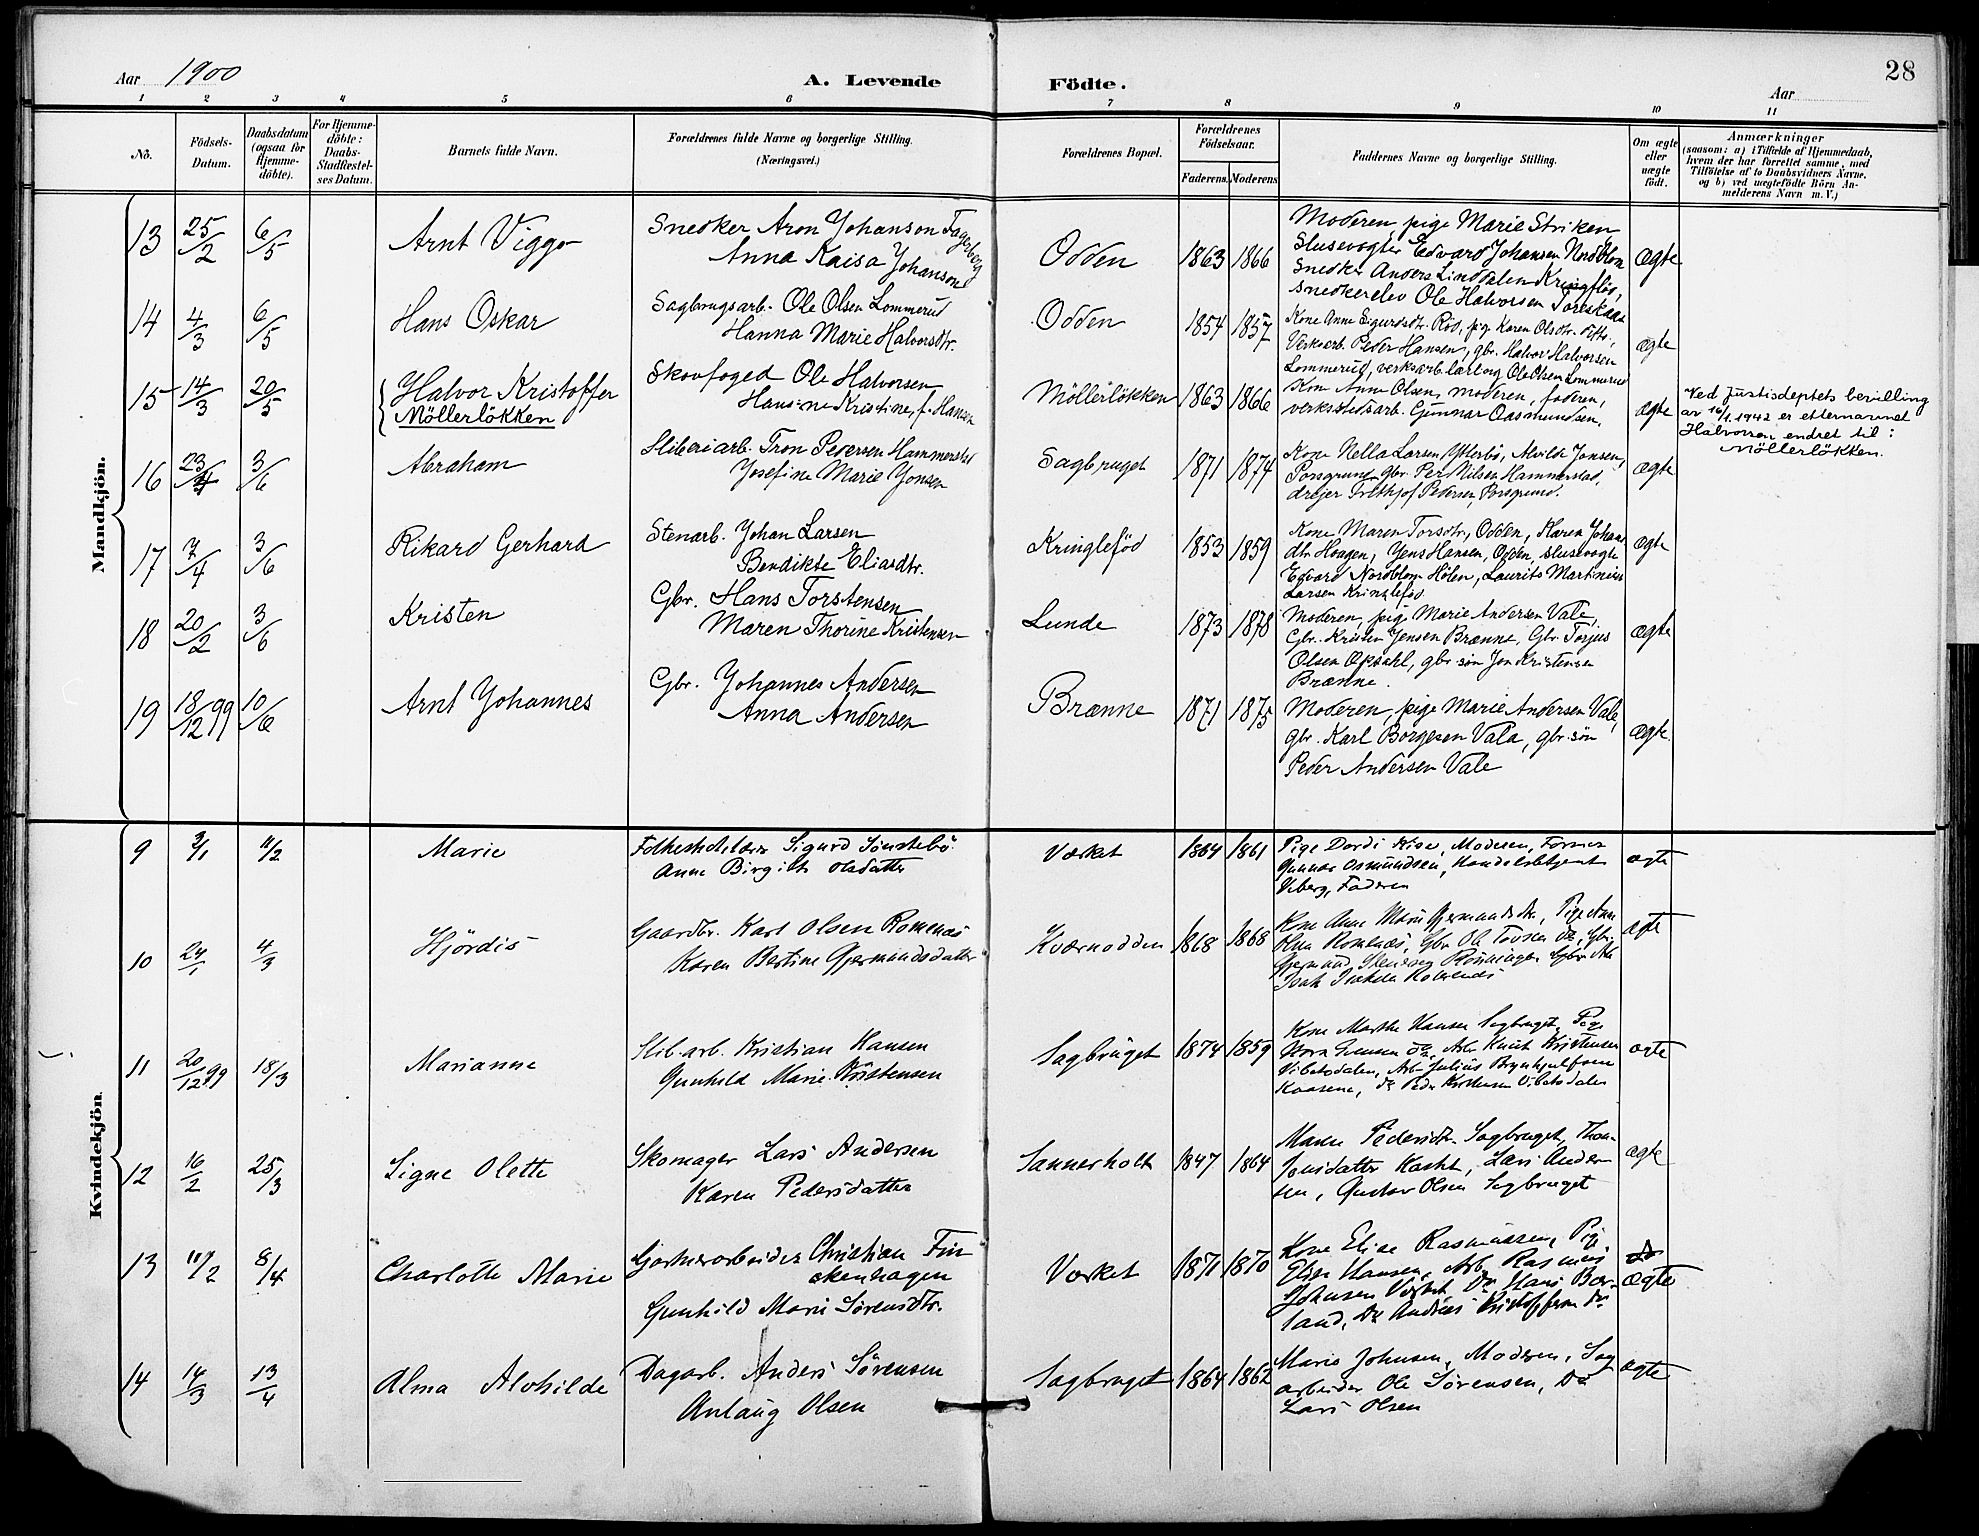 28
Aar 1900
A. Levende Födte.
Aar
1 2 3 4 5 6 7 8 9 10 11
No.
Födsels-
Datum.
Daabsdatum
(ogsaa for
Hjemme-
döbte).
For Hjemme-
döbte:
Daabs-
Stadfæstel-
ses Datum.
Barnets fulde Navn.
Forældrenes fulde Navne og borgerlige Stilling.
(Næringsvei.)
Forældrenes Bopæl.
Forældrenes
Födselsaar.
Faderens. Moderens.
Faddernes Navne og borgerlige Stilling.
Om ægte
eller
uægte
födt.
Anmærkninger
(saasom: a) i Tilfælde af Hjemmedaab,
hvem der har forrettet samme, med
Tilföielse af to Daabsvidners Navne,
og b) ved uægtefödte Börn An-
melderens Navn m. V.)
Mandkjön.
13 25/2 6/5 Arnt Viggo
Snedker Aron Johanson Fagerberg
Anna Kaisa Johanson
Odden 1863 1866
Moderen, pige Marie Striken
Slusevogter Edvard Johansen Nordblom
Snedker Anders Linddalen Kringlföd,
Snedkerelev Ole Halvorsen Toreskaas
ægte
14 4/3 6/5 Hans Oskar
Sagbrugsarb. Ole Olsen Lommerud
Hanna Marie Halvorsdtr.
Odden 1854 1857
Kone Anne Sigurdsdtr. Röd, pige Karen Olsdtr. ditto,
Verksarb. Peder Hansen, gbr. Halvor Halvorsen
Lommerud, verksarb.lærling Ole Olsen Lommerud
ægte
15 14/3 20/5 Halvor Kristoffer
Möllerlökken
Skovfoged Ole Halvorsen
Hansine Kristine, f. Hansen
Möllerlökken 1863 1866
Kone Anne Olsen, moderen, faderen,
verkstedsarb. Gunnar Aasmundsen.
ægte
Ved Justisdeptets bevilling
av 16/1 1942 er etternavnet
Halvorsen endret til:
Möllerlökken.
16 23/4 3/6 Abraham
Sliberiarb. Tron Pedersen Hammerstad
Josefine Marie Jonsen
Sagbruget 1871 1874
Kone Nella Larsen, Ytterbö, Alvilde Jonsen,
Porsgrund, gbr. Per Nilsen Hammerstad,
drejer Frithjof Pedersen, Porsgrund.
ægte
17 7/4 3/6 Rikard Gerhard
Stenarb. Johan Larsen
Bendikte Eliasdtr.
Kringleföd 1853 1859
Kone Maren Torsdtr, Odden, Karen Johans
dtr. Haagen, Jens Hansen, Odden, slusevogte
Edvard Nordblom Hölen, Laurits Martinius
Larsen Kringleföd
ægte
18 20/2 3/6 Kristen
Gbr. Hans Torstensen
Maren Thorine Kristensen
Lunde 1873 1878
Moderen, pige Marie Andersen Vale,
Gbr. Kristen Jensen Brænne, Gbr Torjus
Olsen Opdahl, gbr.søn Jon Kristensen
Brænne.
ægte
19 18/12 99 10/6 Arnt Johannes
Gbr. Johannes Andersen
Anna Andersen
Brænne 1871 1875
Moderen, pige Marie Andersen Vale,
gbr. Karl Borgesen Vala, gbr.søn
Peder Andersen Vale
ægte.
Kvindekjön.
9 2/1 11/2 Marie
Sigurd Sönstebö
Anne Birgith Olsdatter
Værket 1864 1861
Pige Dordi Moderen, Former
Gunnar Osmundsen, Handelsbetjent
Viberg, Faderen
ægte
10 24/1 4/3 Hjördis
Gaardbr. Karl Olsen Romenæs
Karen Bertine Gjermundsdatter
Kværnodden 1868 1868
Kone Anne Marie Gjermundsdtr, Pige Anne
Romenæs, Gbr. Ole do, Gbr.
Gjermund Rönningen
Isak Romenæs
ægte
11 20/12 99 18/3 Marianne
Slib.arb. Kristian Hansen
Gunhild Marie Kristensen
Sagbruget 1874 1859
Kone Marthe Hansen Sagbruget, Pige
do, Arb Knut Kristensen
Vibetodalen, Arb Julius Brynhjulfsen
Kaasene, do Peder Kristensen Vibetodalen
ægte
12 16/2 25/3 Signe Olette
Skomager Lars Andersen
Karen Pedersdatter
Sannerholt 1847 1864
Maren Pedersdtr. Sagbruget,
Lars Ander
sen, Gustav Olsen Sagbruget
ægte
13 11/2 8/4 Charlotte Marie
Gjartnerarbeider Christian Fin
ckenhagen
Gunhild Marie Sørensdtr.
Værket 1871 1870
Kone Elise Rasmussen, Pige
Elise Hansen, Arb. Rasmus
Johnsen Værket, Do Hans Bor-
land, Do Andreas Kristoffersen do
ægte
14 14/3 13/4 Alma Alvhilde
Dagarb. Anders Sørensen
Anlaug Olsen
Sagbruget 1864 1862
Maria Johnsen, Moderen, Sag
arbeider Ole Sørensen, Do
Lars Olsen
ægte